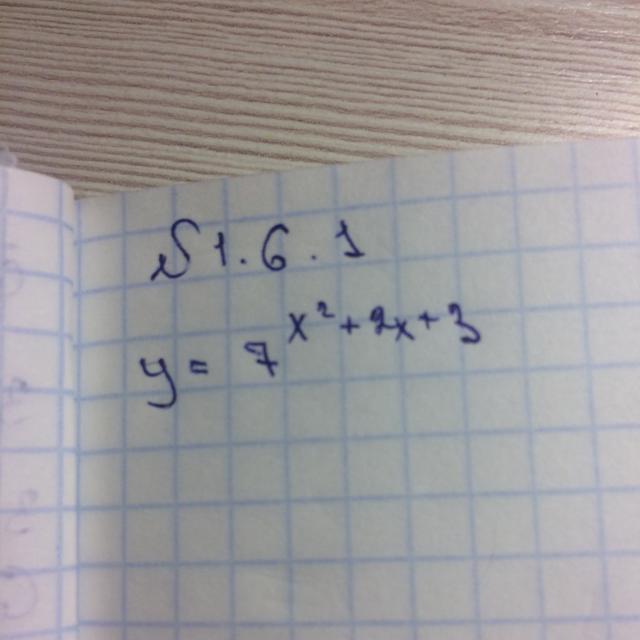 №1.6.1
y = 7^{x²+2x+3}